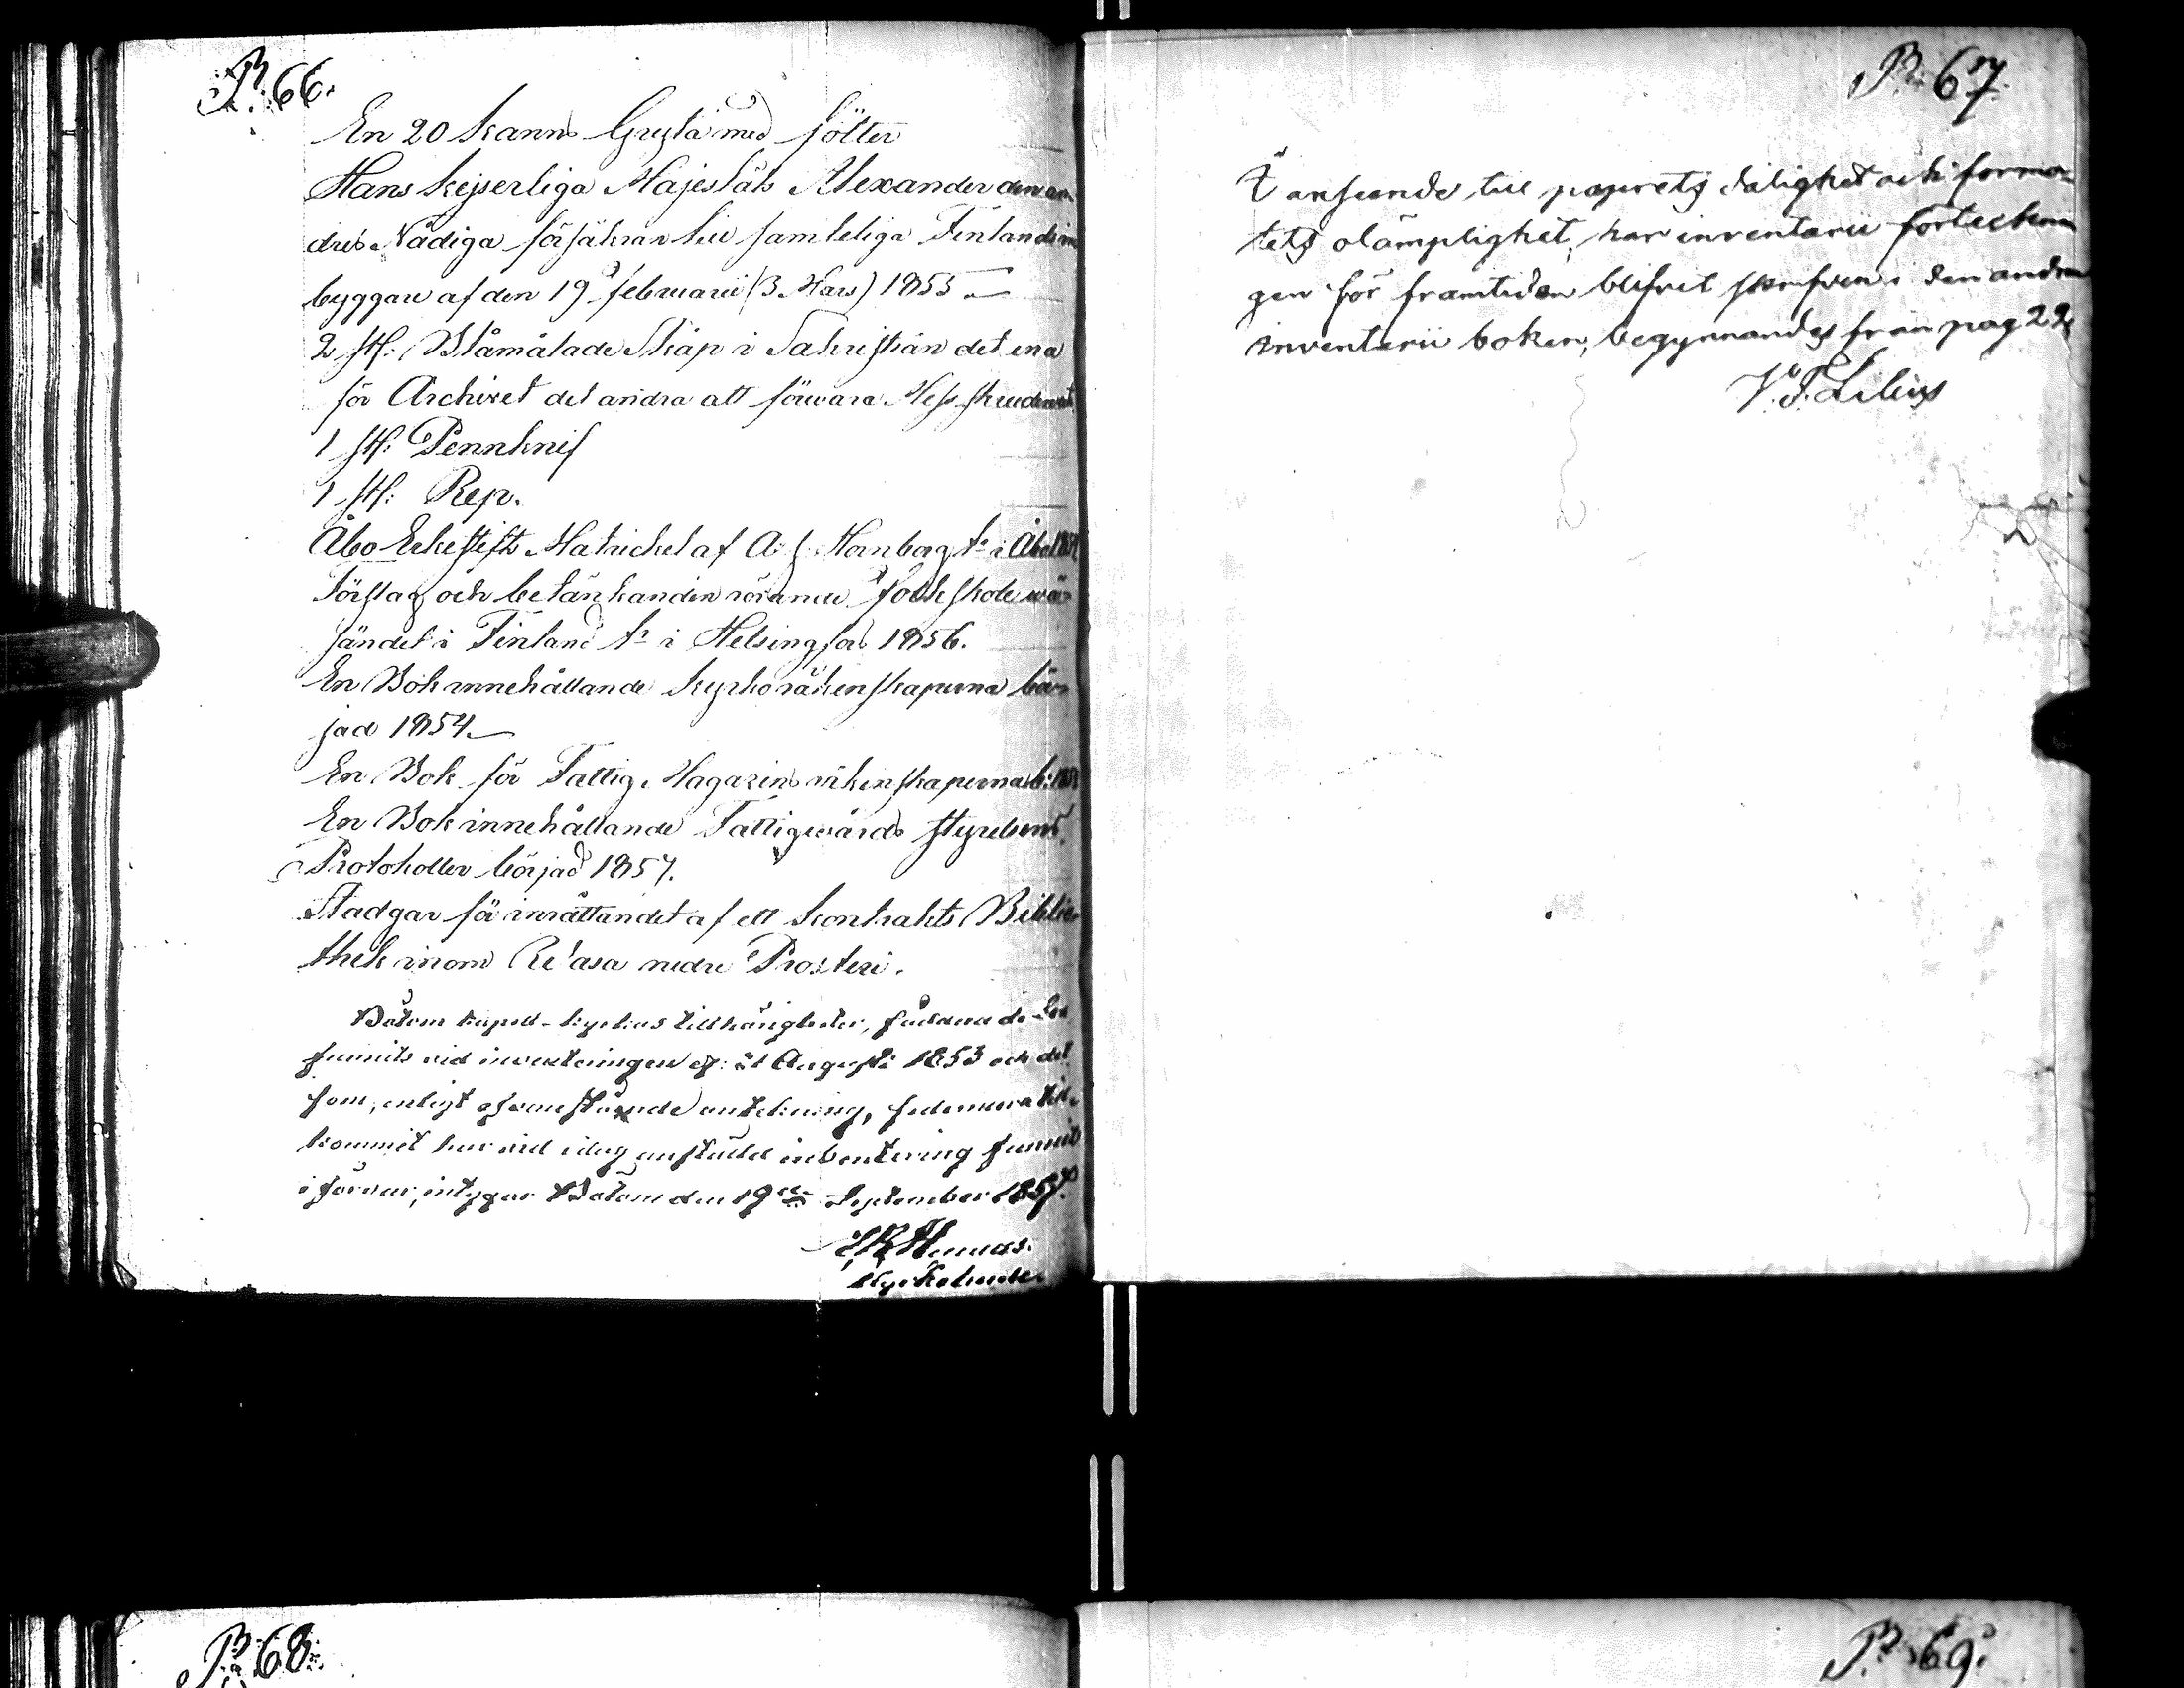 P. 66.
En 20 kanns Gryta med fötter
Hans Kejserliga Majestäts Alexander den an-
dres Nådiga försäkran till samteliga Finlands in-
byggare af den 19 februarii (3 Mars) 1855
2 st: Blåmålade Skåp i Sakristian det ena
för Archivet det andra att förwara Mess skruden
1 st: Pennknif
1 st: Rep.
Åbo Erkestifts Matrickel af A. J. Hornborg tr. i Åbo
Förslag och betänkanden rörande folkskole wä-
sändet i Finland tr. i Helsingfors 1856.
En Bok innehållande Kyrkoräkenskaperna bör-
jad 1854.
En Bok för Fattig Magazins räkenskaperna b:
En Bok innehållande Fattigwårds styrelsens
Protokoller börjad 1857.
Stadgar för inrättandet af ett kontrakts Biblio-
thek inom Wasa nedre Prosteri.
Bötom kapell-kyrkas tillhörigheter, sådana de be-
funnits vid inventeringen d. Augusti 1853 och det
som, enligt ofvanstående antekning, sedermera till-
kommit har vid idag anställd inventering funnits
i förvar, intygar Bötom den 19de September 1857.
P. 67.
I anseende till paprets dålighet och forma-
tets olämplighet, har inventarii förteckni
gen för framtiden blifvit skrifven i den andra
inventarii boken, begynnandes från pag 22
V. F. Lilius
P. 68.
P. 69.